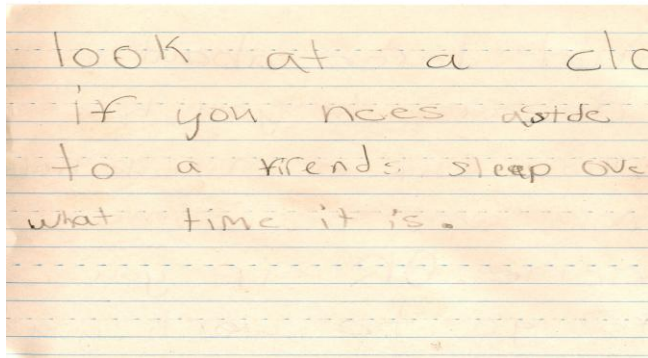 look at a clo
if you nees
to a firends sleep ove
what time it is.